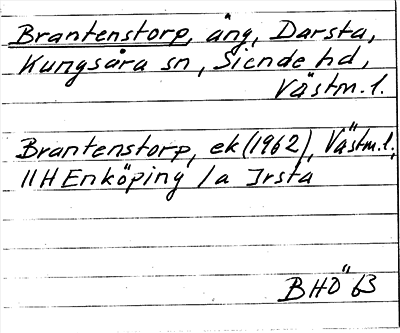 Brantenstorp, äng, Darsta,
Kungsåra sn, Siende hd,
Västm. l.
Brantenstorp, ek (1962), Västm. l.,
11H Enköping 1a Irsta
BHÖ 63